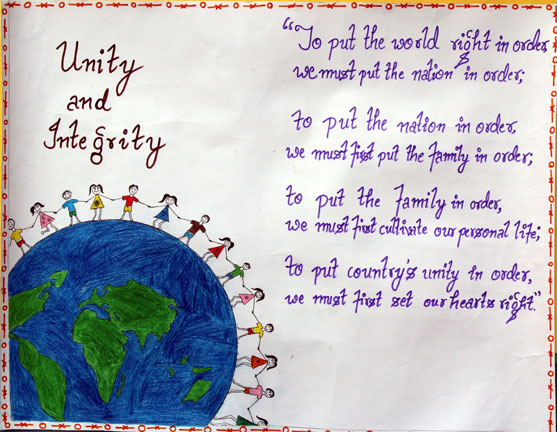 Unity
and
Integrity
“To put the world right in order
we must put the nation in order;
to put the nation in order,
we must first put the family in order;
to put the family in order,
we must first cultivate our personal life;
to put country's unity in order,
we must first set our hearts right.”